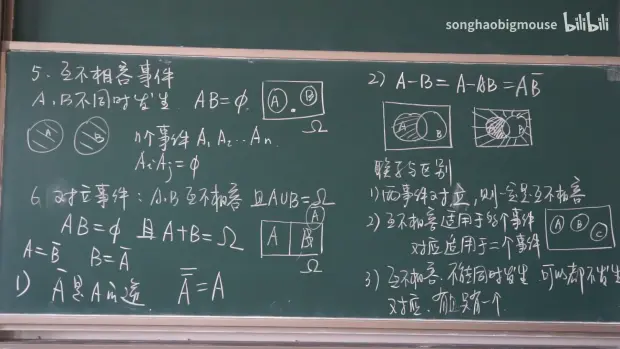 songhaobigmouse bilibili
5. 互不相容事件
A,B不同时发生. AB=φ.
A B
A B
Ω
n个事件 A₁ A₂ … Aₙ
AᵢAⱼ=φ
6. 对立事件: A,B互不相容 且A∪B=Ω
AB=φ 且 A+B=Ω
A B
Ω
A=B̅ B=A̅
1) A̅是A的逆 A̿=A
2) A-B=A-AB=AB̅
A B
B
联系与区别
1) 两事件对立, 则一定是互不相容
2) 互不相容适用于多个事件
对应适用于二个事件
A B C
3) 互不相容. 不能同时发生. 可以都不发生
对应. 有且只有一个